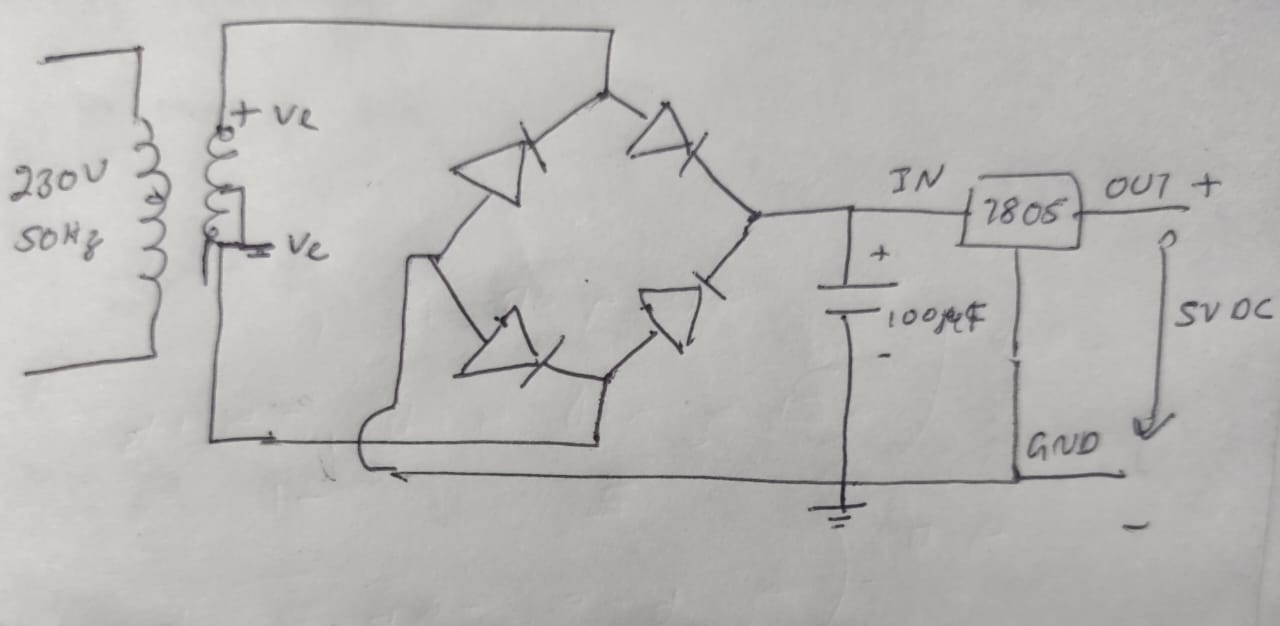 + ve
230V
50Hz
- ve
IN
7805
OUT +
+
100µF
-
5V DC
GND
-